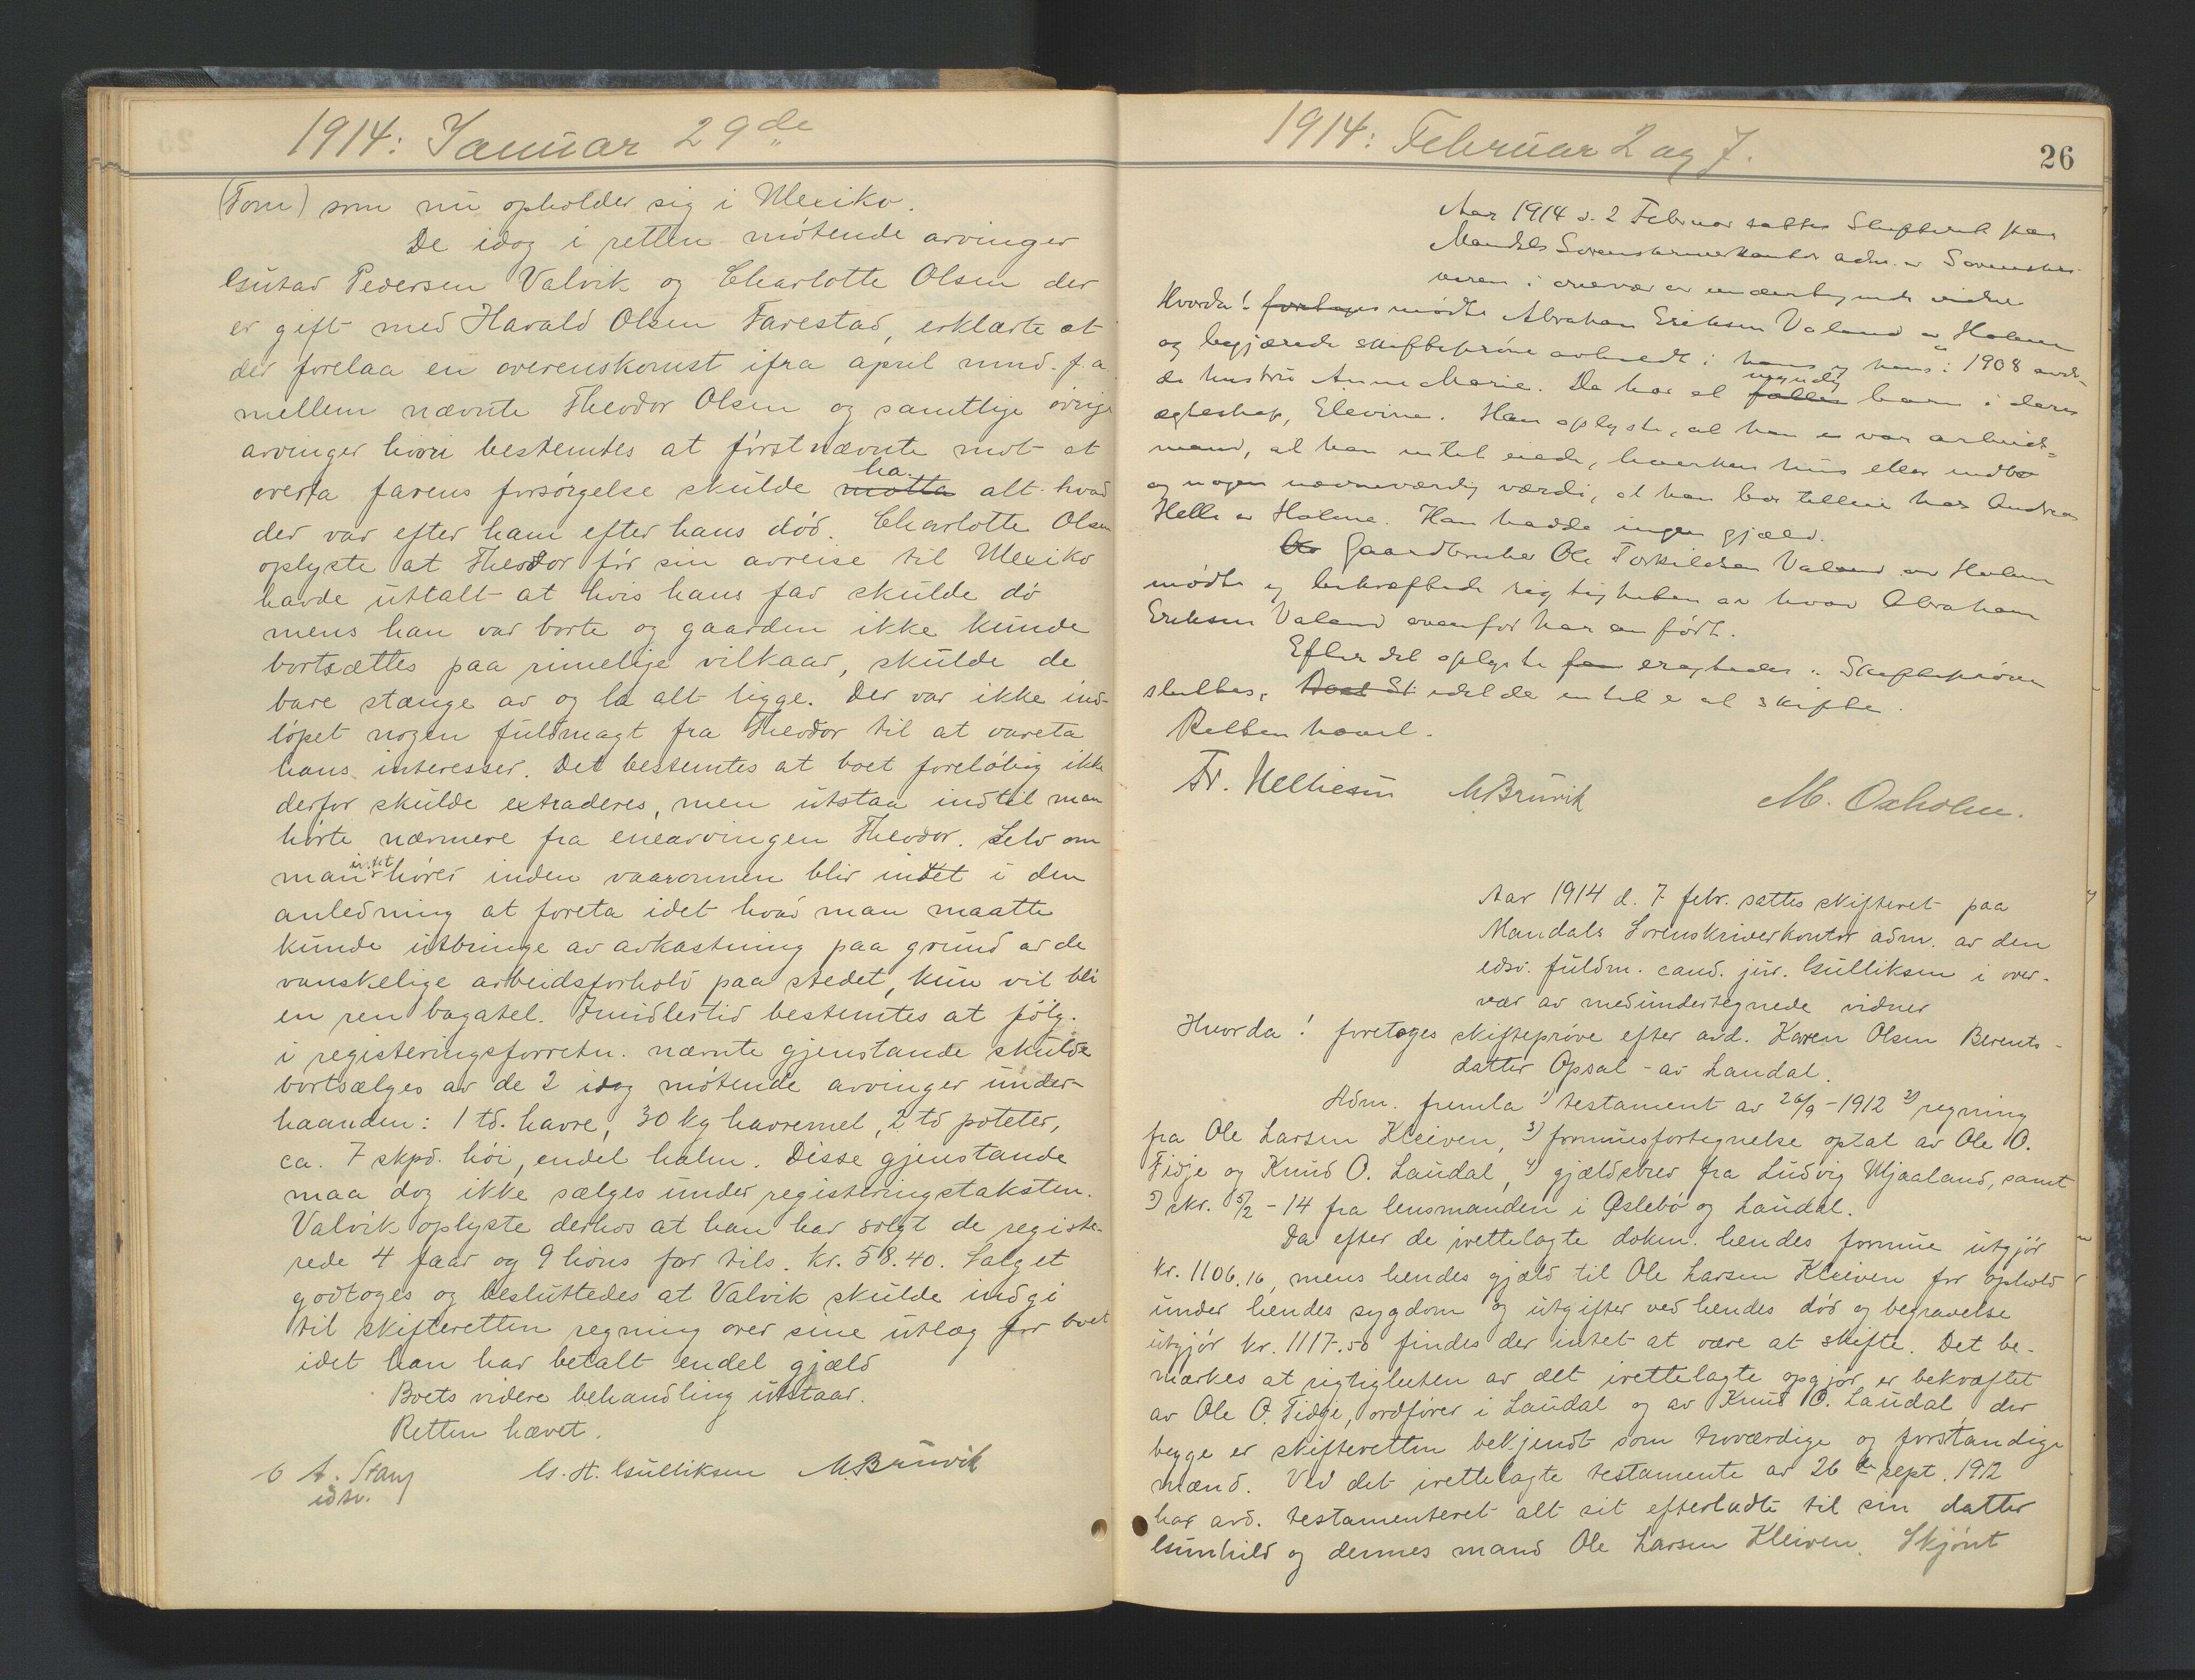 1914: Januar 29de
(Tom) som nu opholder sig i Mexiko.
De idag i retten møtende arvinger
Gustav Pedersen Valvik og Charlotte Olsen der
er gift med Harald Olsen Farestad, erklærte at
der forelaa en overenskomst ifra april mnd. f.a.
mellem nævnte Theodor Olsen og samtlige øvrige
arvinger hvori bestemtes at førstnævnte mot at
overta farens forsørgelse skulde motta ha. alt hvad
der var efter ham efter hans død. Charlotte Olsen
oplyste at Theodor før sin avreise til Mexiko
havde uttalt at hvis hans far skulde dø
mens han var borte og gaarden ikke kunde
bortsættes paa rimelige vilkaar, skulde de
bare stænge av og la alt ligge. Der var ikke ind-
løpet nogen fuldmagt fra Theodor til at vareta
hans interesser. Det bestemtes at boet foreløbig ikke
derfor skulde extraderes, men utstaa indtil man
hørte nærmere fra enearvingen Theodor. Selv om
man intet hører inden vaaronnen blir intet i den
anledning at foreta idet hvad man maatte
kunde utbringe av avkastning paa grund av de
vanskelige arbeidsforhold paa stedet, kun vil bli
en ren bagatel. Imidlertid bestemtes at følg.
i registeringsforretn. nævnte gjenstande skulde
bortsælges av de 2 idag møtende arvinger under-
haanden: 1 td. havre, 30 kg havremel, 2 td poteter,
ca. 7 skpd. høi, endel halm. Disse gjenstande
maa dog ikke sælges under registeringstaksten.
Valvik oplyste derhos at han har solgt de registe-
rede 4 faar og 9 høns for tils. kr. 58.40. Salget
godtoges og besluttedes at Valvik skulde indgi
til skifteretten regning over sine utlæg for boet
idet han har betalt endel gjæld
Boets videre behandling utstaar.
Retten hævet.
A. Stang G. H. Gulliksen M. Bruvik
edsv.
1914: Februar 2 og 7.
26
Aar 1914 d. 2 Februar sattes Skifteret paa
Mandals Sorenskriverkontor adm. av Sorenskri-
veren i overvær av undertegnede vidne
Hvorda! foretages mødte Abraham Eriksen Valand av Holme
og begjærede skifteprøve avholdt i hans og hans i 1908 avdø-
de hustru Anne Marie. De har et fælles myndig barn i deres
egteskap, Elevine. Han oplyste, at han e var arbeids-
mand, at han intet eiede, hverken hus eller indbo
og nogen nævneværdig værdi, at han bor tilleie hos Andreas
Helle av Holme. Han hadde ingen gjæld.
Gaardbruker Ole Torkildsen Valand av Holme
mødte og bekræftede rigtigheden av hvad Abraham
Eriksen Valand ovenfor har anført.
Efter det oplyste eragtedes: Skifteprøven
sluttes, idet der intet er at skifte.
Retten hævet.
Fr. Mellesen M. Bruvik M. Oxholm.
Aar 1914 d. 7 febr. sattes skifteret paa
Mandals Sorenskriverkontor adm. av den
edsv. fuldm. cand. jur. Gulliksen i over-
vær av medundertegnede vidner
Hvorda! foretoges skifteprøve efter avd. Karen Olsen Berents-
datter Opsal - av Laudal.
Adm. fremla 1) testament av 26/9 - 1912 2) regning
fra Ole Larsen Kleiven, 3) formuesfortegnelse optat av Ole O.
Fidje og Knud O. Laudal, 4) gjældsbrev fra Ludvig Mjaaland, samt
5) skr. 5/2 - 14 fra lensmanden i Øslebø og Laudal.
Da efter de irettelagte dokm. hendes formue utgjør
kr. 1106.16, mens hendes gjæld til Ole Larsen Kleiven for ophold
under hendes sygdom og utgifter ved hendes død og begravelse
utgjør kr. 1117.50 findes der intet at være at skifte. Det be-
mærkes at rigtigheten av det irettelagte opgjør er bekræftet
av Ole O. Fidje, ordfører i Laudal og av Knud O. Laudal, der
begge er skifteretten bekjendt som troværdige og forstandige
mænd. Ved det irettelagte testamente av 26de sept. 1912
har avd. testamenteret alt sit efterladte til sin datter
Gunhild og dennes mand Ole Larsen Kleiven. Skjønt